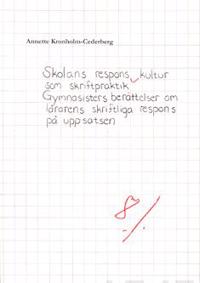 Annette Kronholm-Cederberg
Skolans respons kultur
som skriftpraktik
Gymnasisters berättelser om
lärarens skriftliga respons
på uppsatsen
8